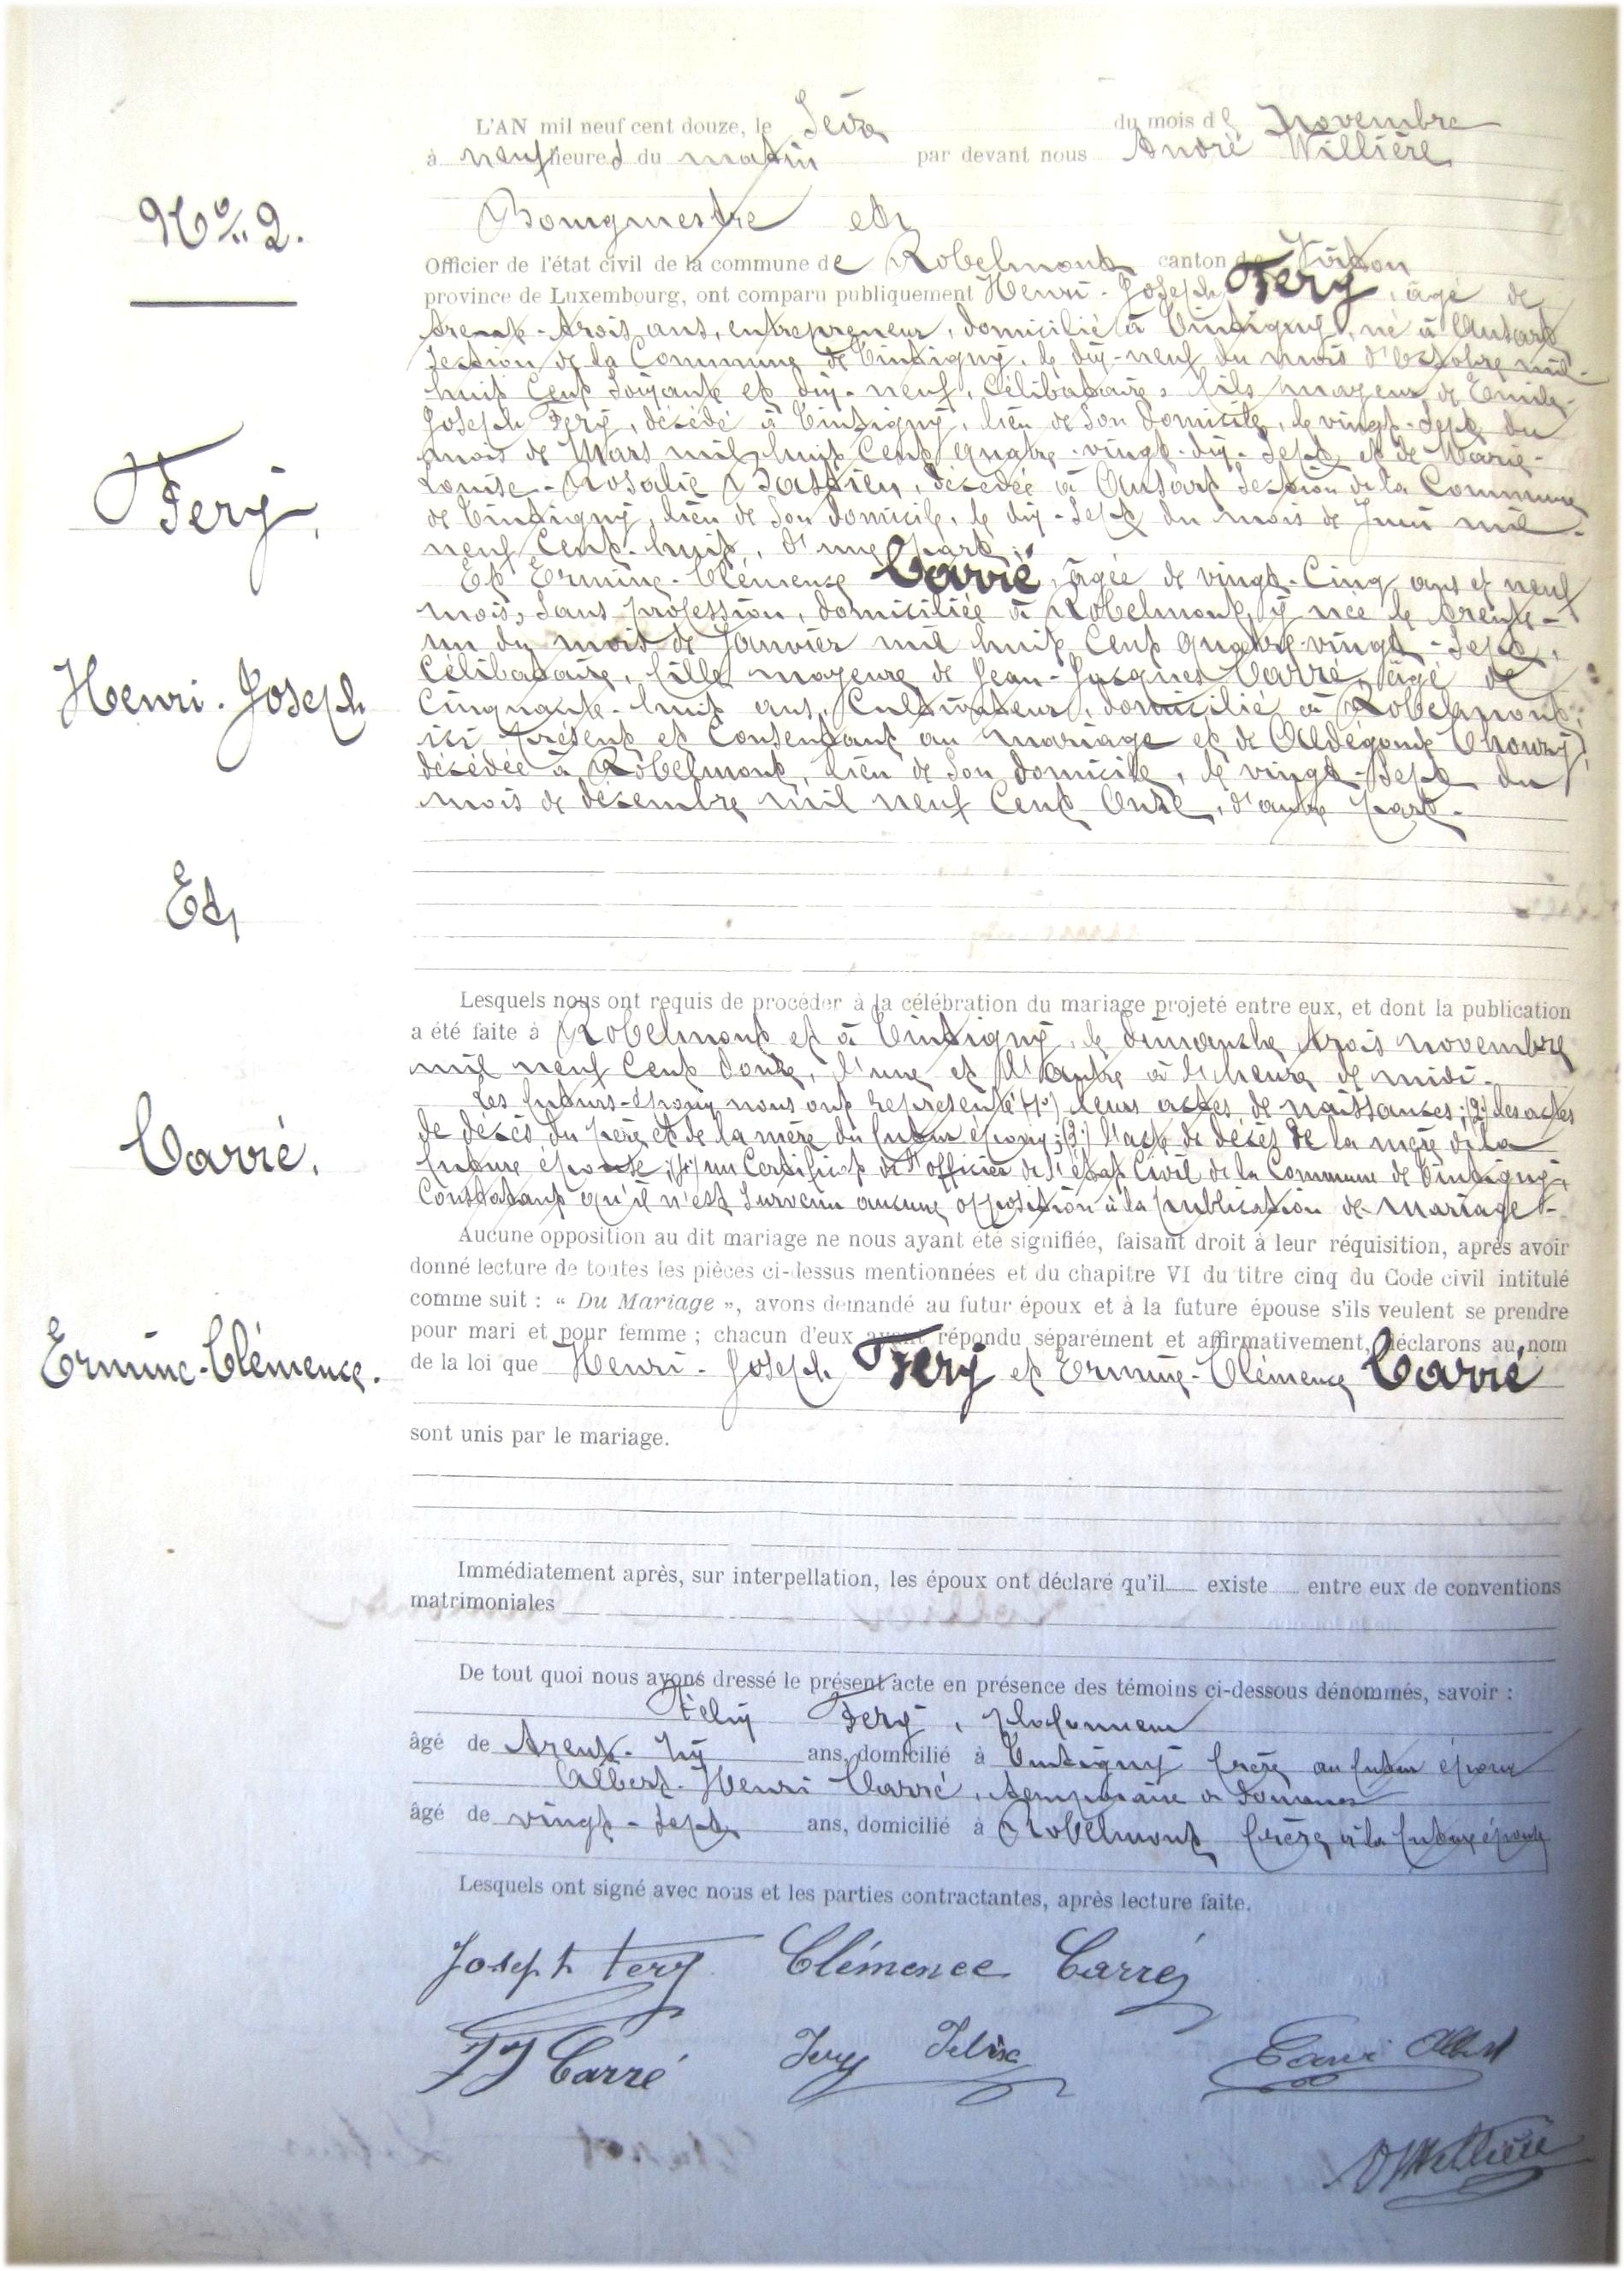 L'AN mil neuf cent douze, le Seize du mois de Novembre
à neuf heures du matin par devant nous André Willière
Nº 2.
Bourgmestre et
Officier de l'état civil de la commune de Robelmont canton de Virton
province de Luxembourg, ont comparu publiquement Henri-Joseph Fery, âgé de
trente-trois ans, entrepreneur, domicilié à Tintigny, né à Ansart
section de la Commune de Tintigny, le dix-neuf du mois d'Octobre mil
huit Cent soixante et dix-neuf, Célibataire, fils majeur de Emile-
Joseph Fery, décédé à Tintigny, lieu de son domicile, le vingt-sept du
mois de Mars mil huit Cent quatre-vingt-dix-sept et de Marie-
Louise-Rosalie Bastien, décédée à Ansart section de la Commune
Fery,
de Tintigny, lieu de son domicile, le dix-sept du mois de Juin mil
neuf Cent-huit, d'une part;
Et Ermine-Clémence Carré, âgée de vingt-Cinq ans et neuf
mois, sans profession, domiciliée à Robelmont, y née le trente-
un du mois de Janvier mil huit Cent quatre-vingt-sept,
Célibataire, fille majeure de Jean-Jacques Carré, âgé de
Henri-Joseph
Cinquante-huit ans, Cultivateur, domicilié à Robelmont,
ici présent et Consentant au mariage et de Aldegonde Thowry,
décédée à Robelmont, lieu de son domicile, le vingt-sept du
mois de décembre mil neuf Cent Onze, d'autre part.
Et
Lesquels nous ont requis de procéder à la célébration du mariage projeté entre eux, et dont la publication
a été faite à Robelmont et à Tintigny, le dimanche trois novembre
mil neuf Cent douze, l'une et l'autre à l'heure de midi.
Les futurs-époux nous ont représenté (1º) leurs actes de naissances; (2º) les actes
de décès du père et de la mère du futur époux; (3º) l'acte de décès de la mère de la
Carré.
future épouse; (4º) un Certificat de l'officier de l'état Civil de la Commune de Tintigny,
Constatant qu'il n'est survenu aucune opposition à la publication de mariage-
Aucune opposition au dit mariage ne nous ayant été signifiée, faisant droit à leur réquisition, après avoir
donné lecture de toutes les pièces ci-dessus mentionnées et du chapitre VI du titre cinq du Code civil intitulé
comme suit : « Du Mariage », avons demandé au futur époux et à la future épouse s'ils veulent se prendre
pour mari et pour femme ; chacun d'eux ayant répondu séparément et affirmativement, déclarons au nom
Ermine-Clémence.
de la loi que Henri-Joseph Fery et Ermine-Clémence Carré
sont unis par le mariage.
Immédiatement après, sur interpellation, les époux ont déclaré qu'il existe entre eux de conventions
matrimoniales
De tout quoi nous avons dressé le présent acte en présence des témoins ci-dessous dénommés, savoir :
Félix Fery, plafonneur
âgé de trente-six ans, domicilié à Tintigny frère au futur époux
Albert-Henri Carré, temporaire
âgé de vingt-sept ans, domicilié à Robelmont frère à la future épouse
Lesquels ont signé avec nous et les parties contractantes, après lecture faite.
Joseph Fery Clémence Carré
JJ Carré Fery Félix Carré Albert
A Willière